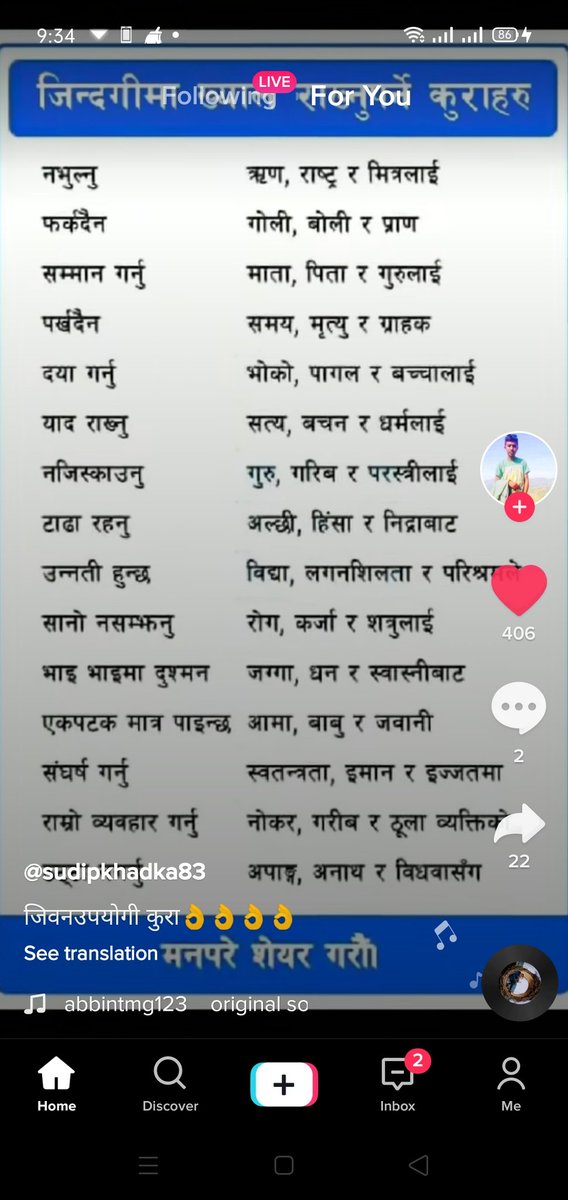 9:34 86
LIVE
Following For You
जिन्दगीमा कुराहरु
नभुल्नु ऋण, राष्ट्र र मित्रलाई
फर्कदैन गोली, बोली र प्राण
सम्मान गर्नु माता, पिता र गुरुलाई
पर्खदैन समय, मृत्यु र ग्राहक
दया गर्नु भोको, पागल र बच्चालाई
याद राख्नु सत्य, बचन र धर्मलाई
नजिस्काउनु गुरु, गरिब र परस्त्रीलाई
टाढा रहनु अल्छी, हिंसा र निद्राबाट
उन्नती हुन्छ विद्या, लगनशिलता र परिश्रमले
सानो नसम्झनु रोग, कर्जा र शत्रुलाई
406
भाइ भाइमा दुश्मन जग्गा, धन र स्वास्नीबाट
एकपटक मात्र पाइन्छ आमा, बाबु र जवानी
2
संघर्ष गर्नु स्वतन्त्रता, इमान र इज्जतमा
राम्रो व्यवहार गर्नु नोकर, गरीब र ठूला व्यक्तिको
22
@sudipkhadka83
अपाङ्ग, अनाथ र विधवासँग
जिवनउपयोगी कुरा👌👌👌👌
See translation
मनपरे शेयर गरौं।
abbintmg123 original so
Home Discover Inbox 2 Me